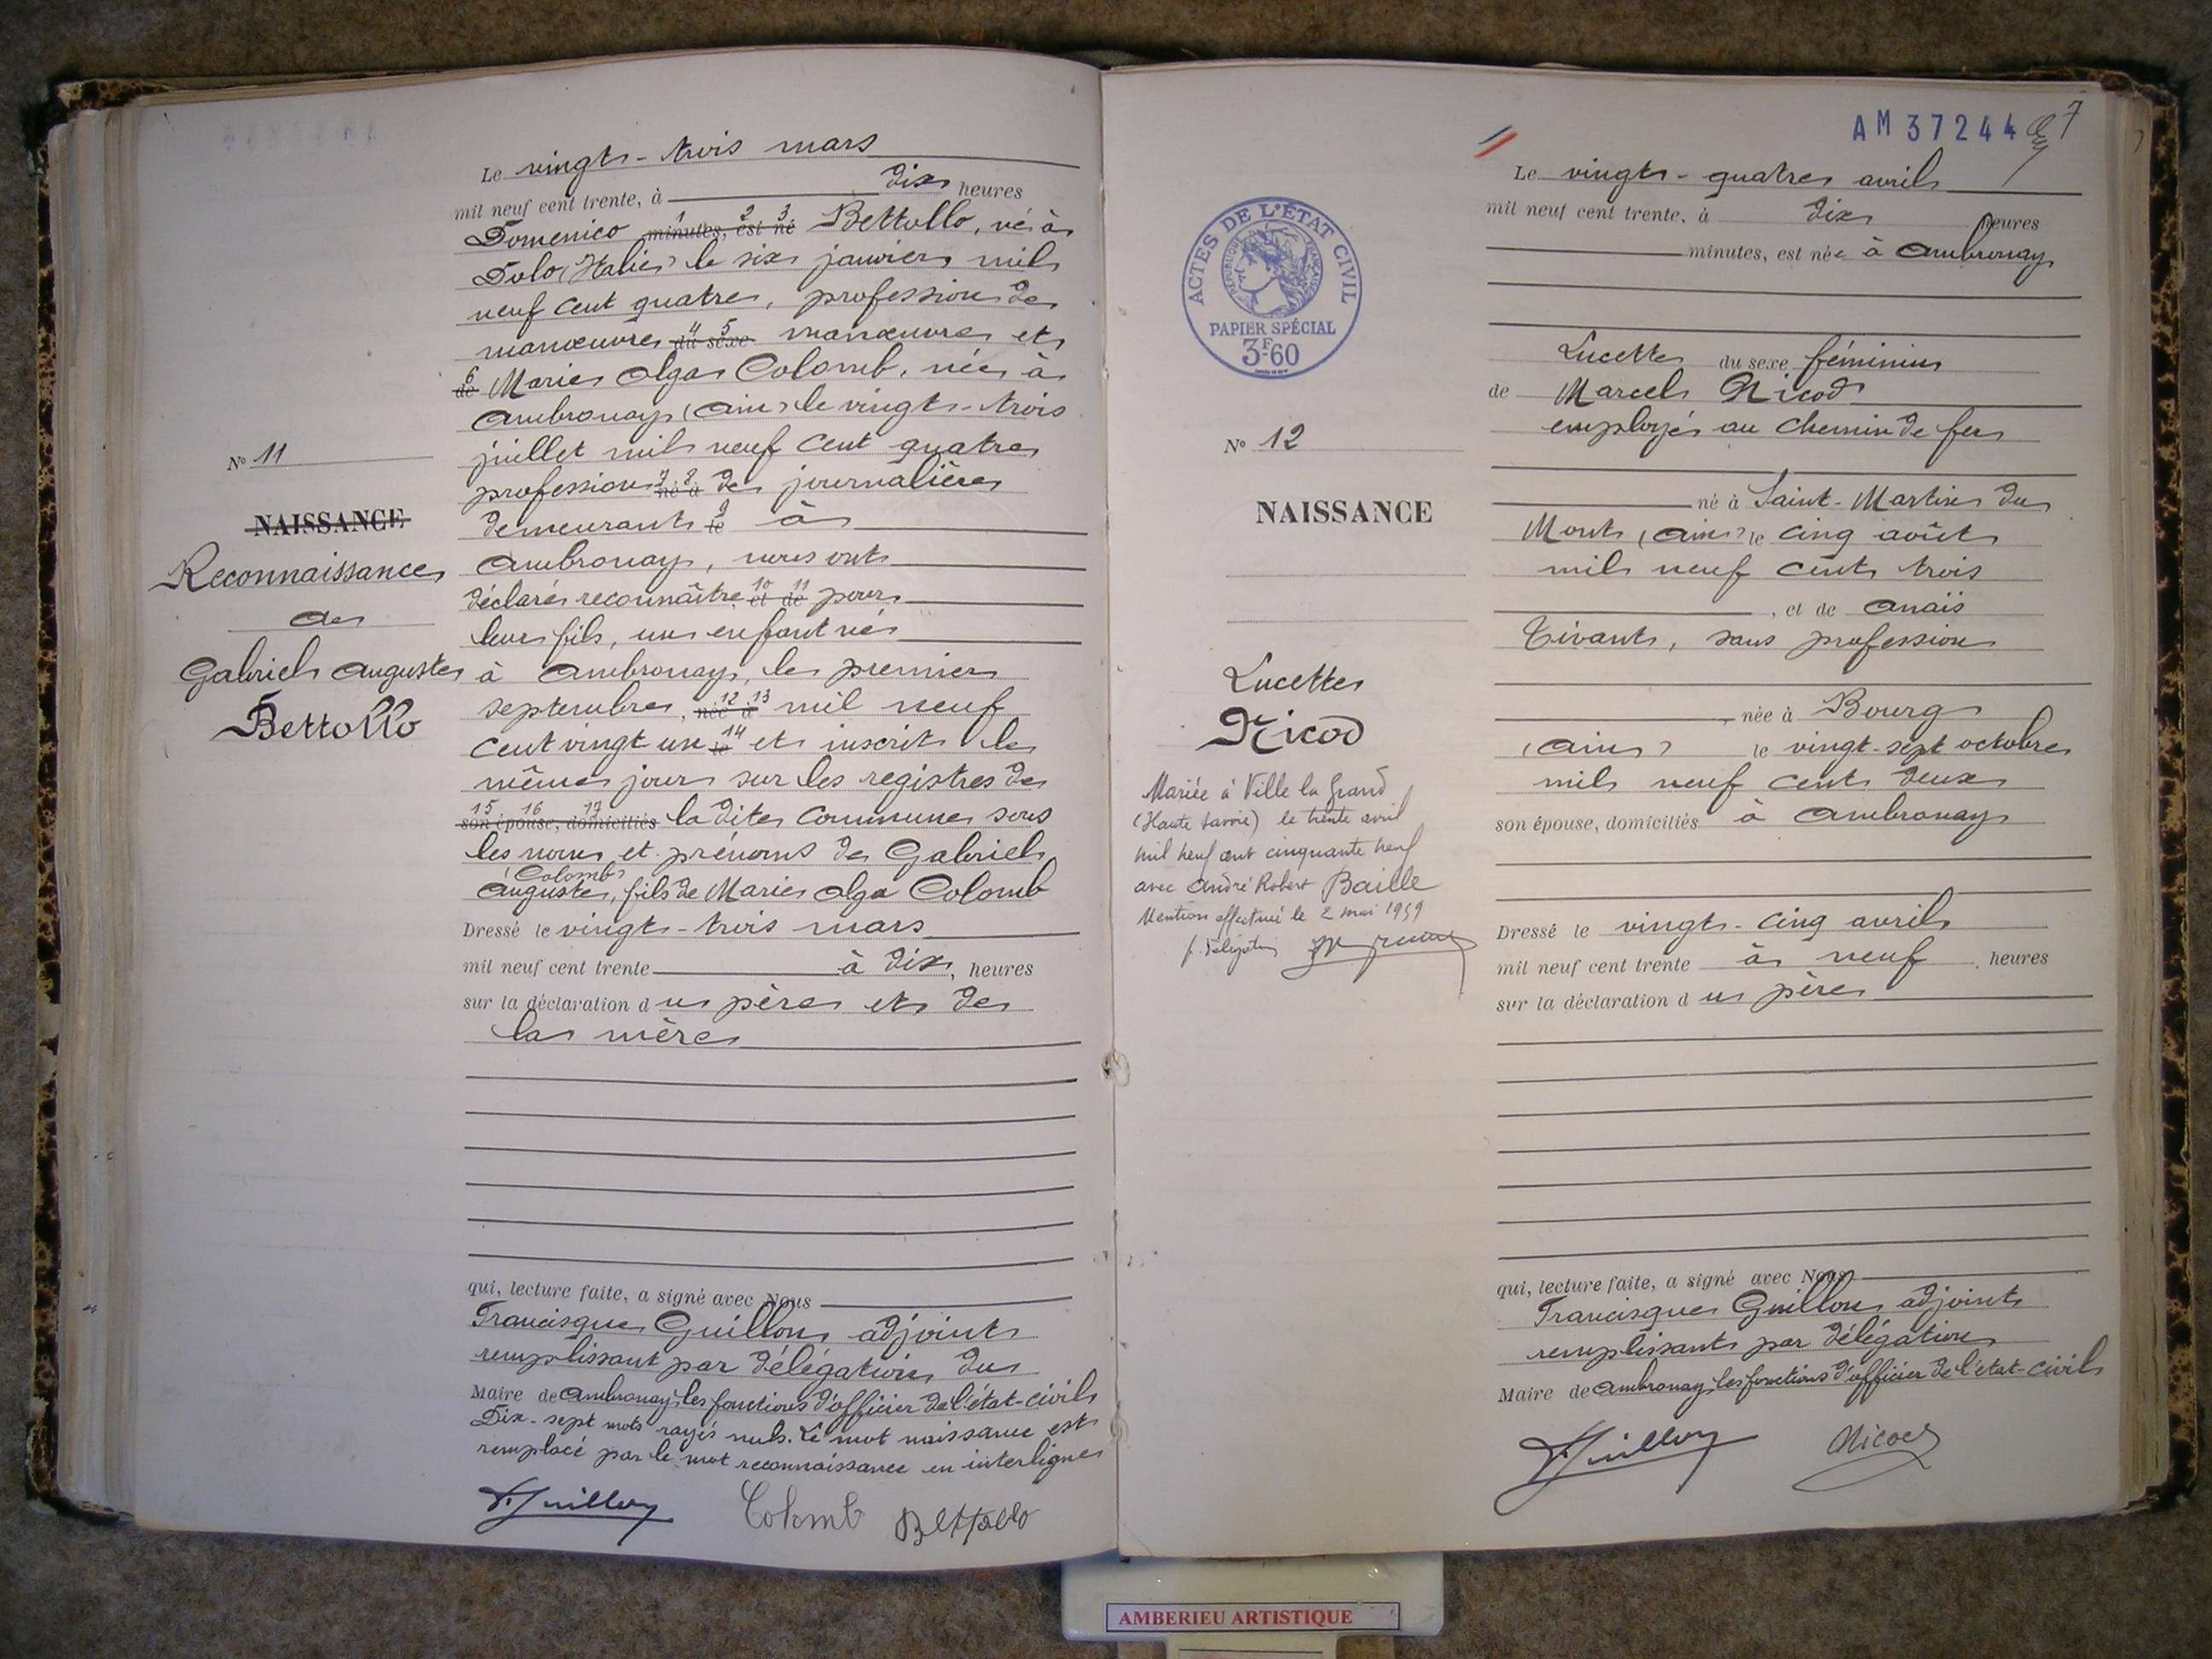 Le vingt-trois mars
mil neuf cent trente, à dix heures
Domenico minutes, est né Bettollo, né à
1 2 3
Dolo (Italie) le six janvier mil
neuf cent quatre, profession de
manœuvre du sexe manœuvre et
4 5
de Marie Olga Colomb, née à
6
Ambronay (Ain) le vingt-trois
juillet mil neuf cent quatre
profession né à de journalière
7 8
demeurant le à
9
Ambronay, nous ont
déclaré reconnaître et de pour
10 11
leur fils, un enfant né
à Ambronay, le premier
septembre, née à mil neuf
12 13
cent vingt un le et inscrit le
14
même jour sur les registres de
15 16 17
son épouse, domiciliés la dite commune sous
les noms et prénoms de Gabriel
(Colomb)
Auguste, fils de Marie Olga Colomb
Dressé le vingt-trois mars
mil neuf cent trente à dix, heures
sur la déclaration d u père et de
la mère
qui, lecture faite, a signé avec Nous
Francisque Guillon adjoint
remplissant par délégation du
Maire de Ambronay les fonctions d'officier de l'état-civil
Dix-sept mots rayés nuls. Le mot naissance est
remplacé par le mot reconnaissance en interligne
F. Guillon Colomb Bettollo
N° 11
NAISSANCE
Reconnaissance
de
Gabriel Auguste
Bettollo
AM 37244
7
ACTES DE L'ÉTAT CIVIL
RÉPUBLIQUE FRANÇAISE
PAPIER SPÉCIAL
3F60
N° 12
NAISSANCE
Lucette
Nicod
Mariée à Ville la Grand
(Haute Savoie) le trente avril
mil neuf cent cinquante neuf
avec André Robert Baille
Mention effectuée le 2 mai 1959
Le vingt-quatre avril
mil neuf cent trente, à dix heures
minutes, est née à Ambronay
Lucette du sexe féminin
de Marcel Nicod
employé au chemin de fer
né à Saint-Martin du
Mont (Ain) le cinq août
mil neuf cent trois
, et de Anaïs
Tivant, sans profession
, née à Bourg
(Ain) le vingt-sept octobre
mil neuf cent deux
son épouse, domiciliés à Ambronay
Dressé le vingt-cinq avril
mil neuf cent trente à neuf, heures
sur la déclaration d u père
qui, lecture faite, a signé avec Nous
Francisque Guillon adjoint
remplissant par délégation
Maire de Ambronay les fonctions d'officier de l'état-civil
F. Guillon Nicod
AMBERIEU ARTISTIQUE